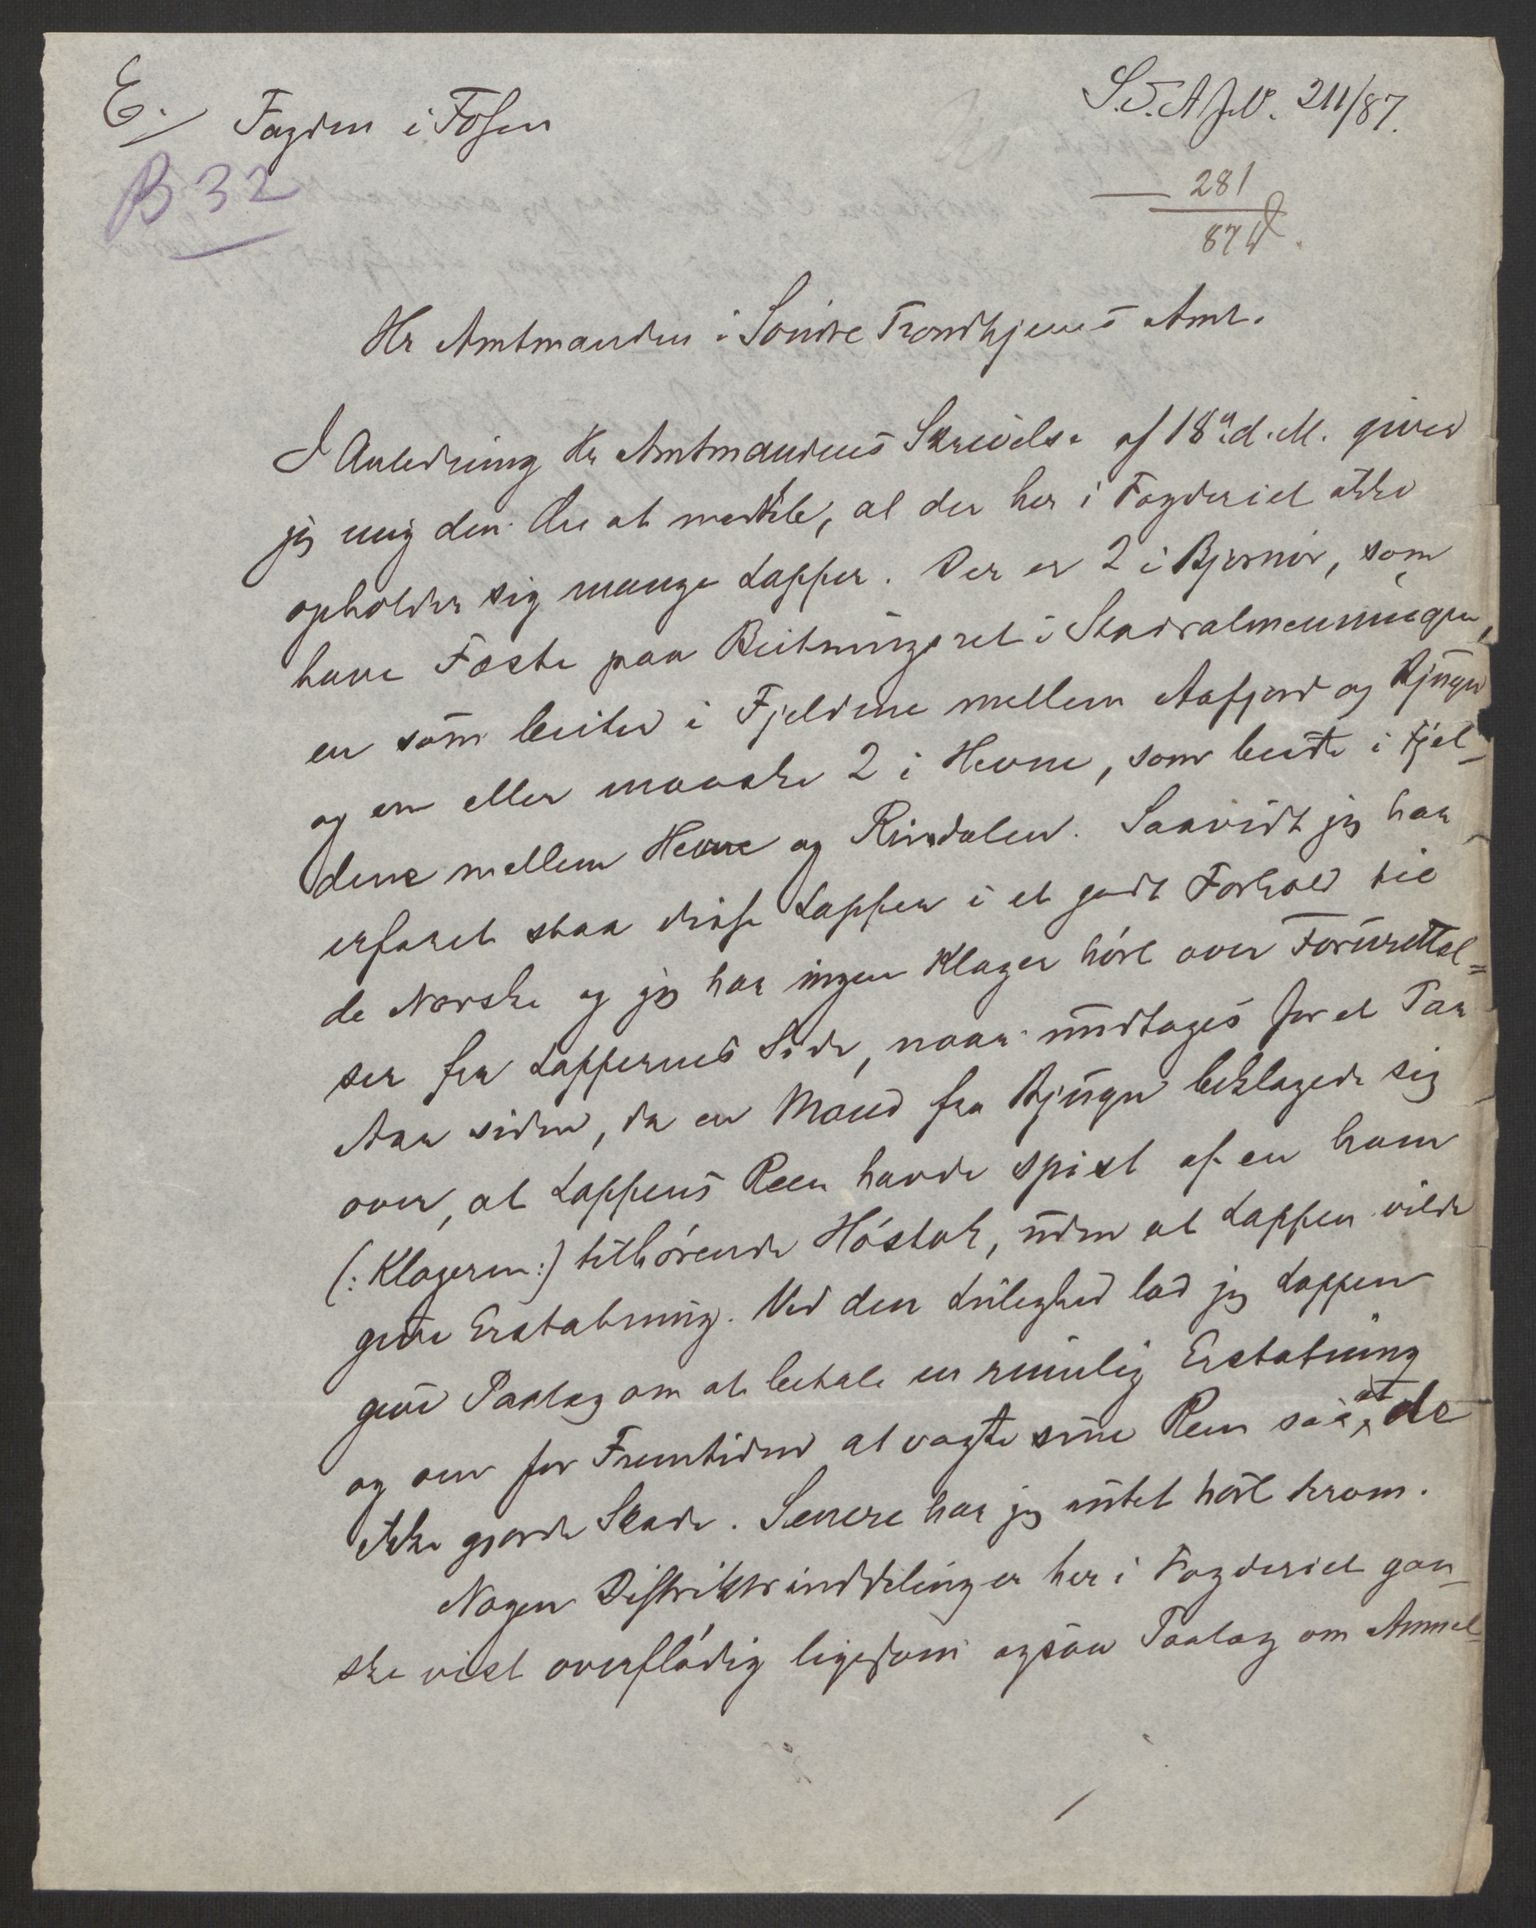 E.
Fogden i Fosen
S. T. A. J. N. 211/87.
B 32
281
87
Hr Amtmanden i Söndre Trondhjems Amt.
I Anledning Hr Amtmandens Skrivelse af 18de d. M. giver
jeg mig den Ære at meddele, at der her i Fogderiet ikke
opholder sig mange Lapper. Der er 2 i Bjørnör, som
have Fæste paa Beitningsret i Stadsalmenningen,
en som beiter i Fjeldene mellem Aafjord og Bjugn
og en eller maaske 2 i Hevne, som beite i Fjel-
dene mellem Hevne og Rindalen. Saavidt jeg har
erfaret staa disse Lapper i et godt Forhold til
de Norske og jeg har ingen Klager hört over Forurettel-
ser fra Lappernes Side, naar undtages for et Par
Aar siden, da en Mand fra Bjugn beklagede sig
over, at Lappens Reen havde spist af en ham
(: Klageren :) tilhörende Höstak, uden at Lappen vilde
give Erstatning. Ved den Leilighed lod jeg Lappen
give Paalæg om at betale en rimelig Erstatning
og om for Fremtiden at vogte sine Reen saa at de
ikke gjorde Skade. Senere har jeg intet hört derom.
Nogen Distriktsinddelinger her i Fogderiet gan-
ske vist overflödig ligesom ogsaa Paalæg om Anmel-